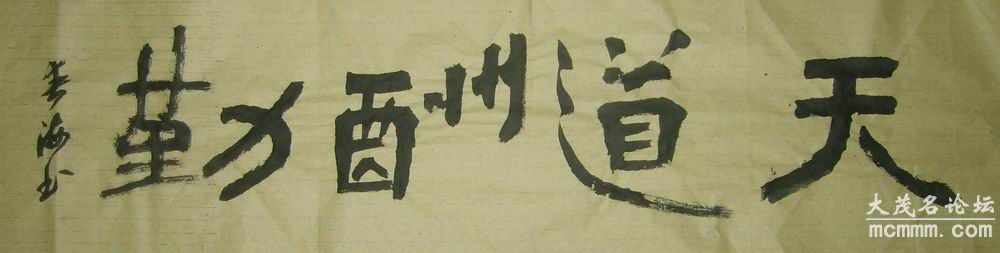 天道酬勤
大茂名论坛
mcmmm.com